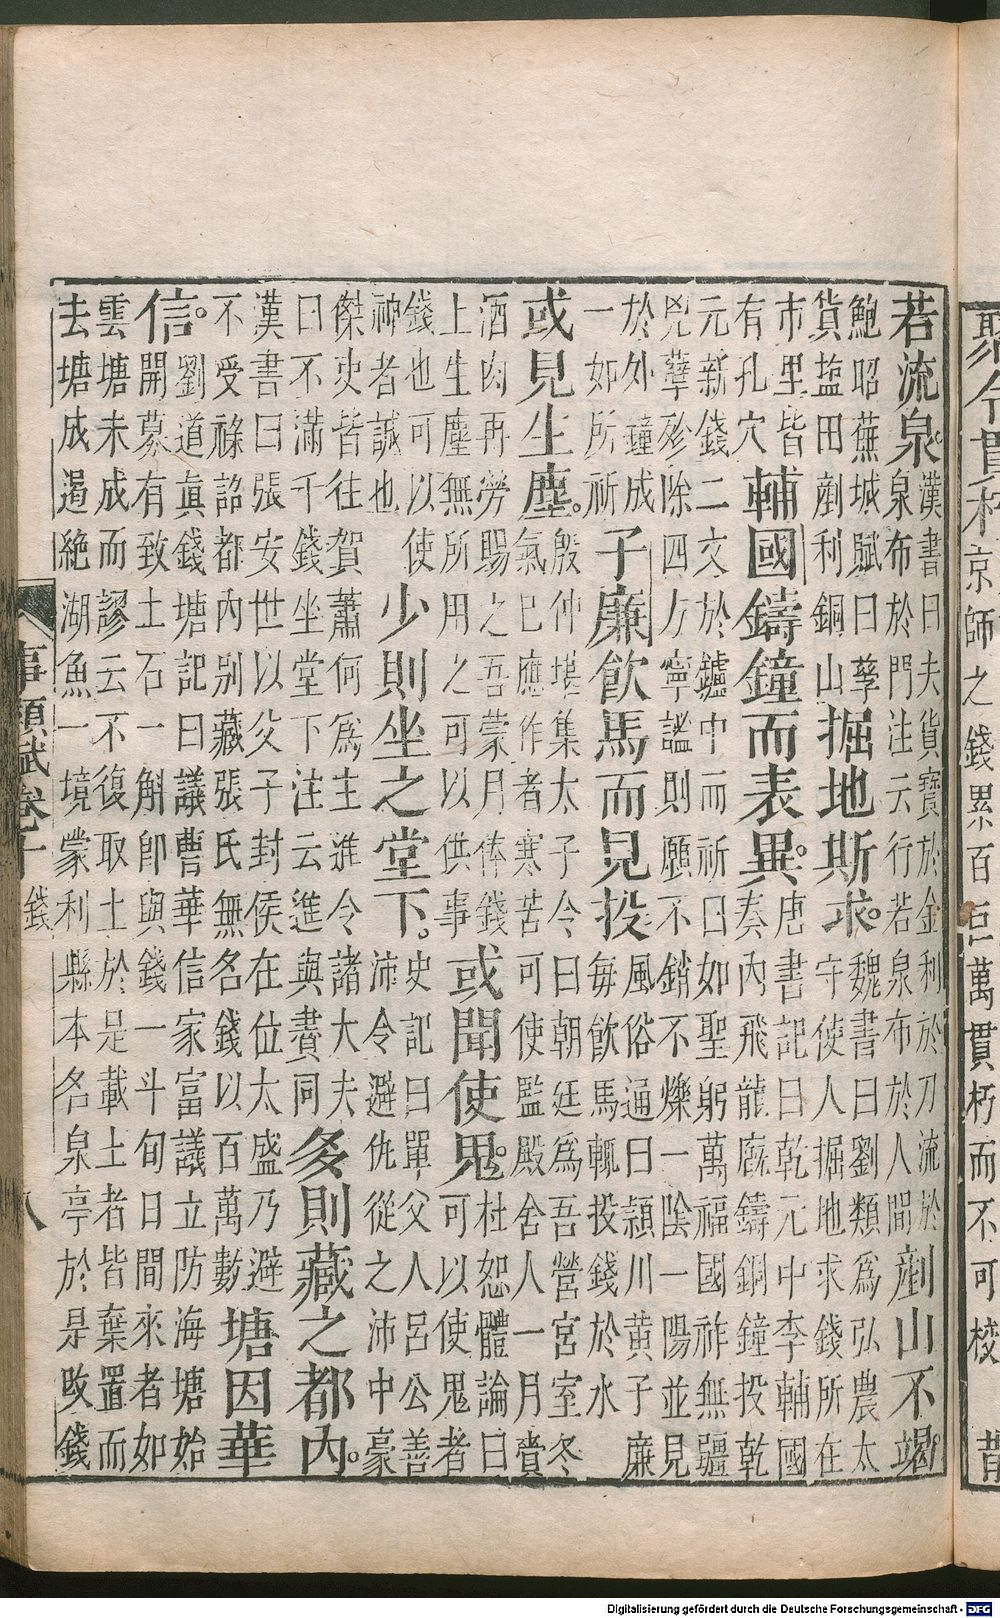 京師之錢累百巨萬貫朽而不可校
散
若流泉。漢書曰夫貨寶於金利於刀流於
泉布於門注云行若泉布於人間剷山不竭。
鮑昭蕪城賦曰孳
貨塩田剷利銅山掘地斯求。魏書曰劉類爲弘農太
守使人掘地求錢所在
市里皆
有孔穴輔國鑄鐘而表異。唐書記曰乾元中李輔國
奏内飛龍廐鑄銅鐘投乾
元新錢二文於鑪中而祈曰如聖躬萬福國祚無疆
兇孽殄除四方寧謐則願不銷不爍一陰一陽並見
於外鐘成
一如所祈子廉飲馬而見投風俗通曰潁川黄子廉
每飲馬輒投錢於水
或見生塵。殷仲堪集太子令曰朝廷爲吾營宮室冬
氣已應作者寒苦可使監殿舍人一月賫
酒肉再勞賜之吾蒙月俸錢
上生塵無所用之可以供事或聞使鬼。杜恕體論曰
可以使鬼者
錢也可以使
神者誠也少則坐之堂下。史記曰單父人呂公善
沛令避仇從之沛中豪
傑史皆往賀蕭何爲主進令諸大夫
曰不滿千錢坐堂下注云進與賮同多則藏之都內。
漢書曰張安世以父子封侯在位太盛乃避
不受祿詔都內别藏張氏無名錢以百萬數塘因華
信。劉道眞錢塘記曰議曹華信家富議立防海塘始
開募有致土石一斛即與錢一斗旬日間來者如
雲塘未成而謬云不復取土於是載土者皆棄置而
去塘成遏絶湖魚一境蒙利縣本名泉亭於是改錢
事類賦卷十 錢 八
Digitalisierung gefördert durch die Deutsche Forschungsgemeinschaft - DFG